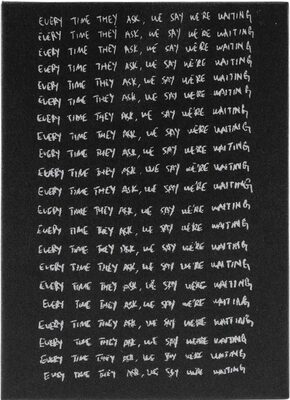 EVERY TIME THEY ASK, WE SAY WE'RE WAITING
EVERY TIME THEY ASK, WE SAY WE'RE WAITING
EVERY TIME THEY ASK, WE SAY WE'RE WAITING
EVERY TIME THEY ASK, WE SAY WE'RE WAITING
EVERY TIME THEY ASK, WE SAY WE'RE WAITING
EVERY TIME THEY ASK, WE SAY WE'RE WAITING
EVERY TIME THEY ASK, WE SAY WE'RE WAITING
EVERY TIME THEY ASK, WE SAY WE'RE WAITING
EVERY TIME THEY ASK, WE SAY WE'RE WAITING
EVERY TIME THEY ASK, WE SAY WE'RE WAITING
EVERY TIME THEY ASK, WE SAY WE'RE WAITING
EVERY TIME THEY ASK, WE SAY WE'RE WAITING
EVERY TIME THEY ASK, WE SAY WE'RE WAITING
EVERY TIME THEY ASK, WE SAY WE'RE WAITING
EVERY TIME THEY ASK, WE SAY WE'RE WAITING
EVERY TIME THEY ASK, WE SAY WE'RE WAITING
EVERY TIME THEY ASK, WE SAY WE'RE WAITING
EVERY TIME THEY ASK, WE SAY WE'RE WAITING
EVERY TIME THEY ASK, WE SAY WE'RE WAITING
EVERY TIME THEY ASK, WE SAY WE'RE WAITING
EVERY TIME THEY ASK, WE SAY WE'RE WAITING